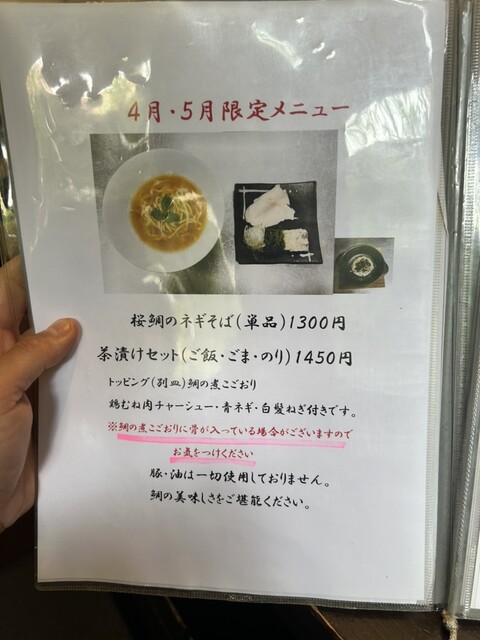 4月・5月限定メニュー
桜鯛のネギそば(単品)1300円
茶漬けセット(ご飯・ごま・のり)1450円
トッピング(別皿)鯛の煮こごおり
鶏むね肉チャーシュー・青ネギ・白髪ねぎ付きです。
※鯛の煮こごおりに骨が入っている場合がございますので
お気をつけください
豚・油は一切使用しておりません。
鯛の美味しさをご堪能ください。